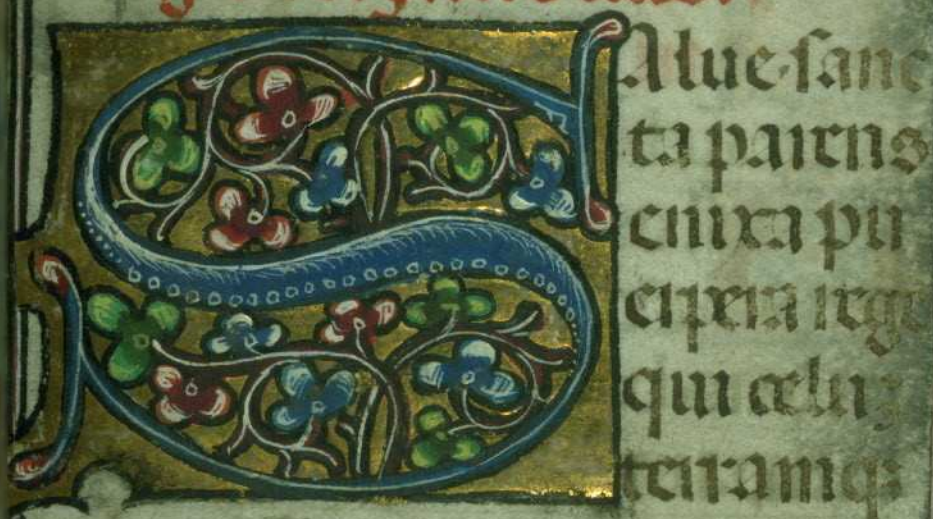 SAlue sanc
ta parens
enixa pu
erpera rege
qui celuz
terramq;